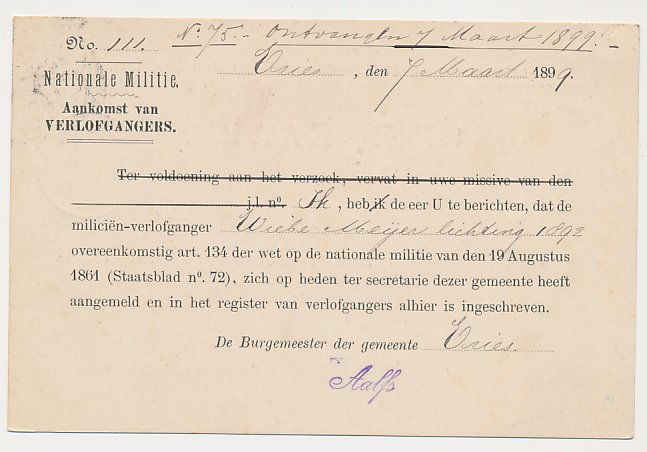 No. 111. No. 75. - Ontvangen 7 Maart 1899. -
Vries, den 7 Maart 1899.
Nationale Militie.
Aankomst van
VERLOFGANGERS.
Ter voldoening aan het verzoek, vervat in uwe missive van den
j.l. no. Ik, heb ik de eer U te berichten, dat de
milicién-verlofganger Wiebe Meijer lichting 1892
overeenkomstig art. 134 der wet op de nationale militie van den 19 Augustus
1861 (Staatsblad no. 72), zich op heden ter secretarie dezer gemeente heeft
aangemeld en in het register van verlofgangers alhier is ingeschreven.
De Burgemeester der gemeente Vries.
Aalfs